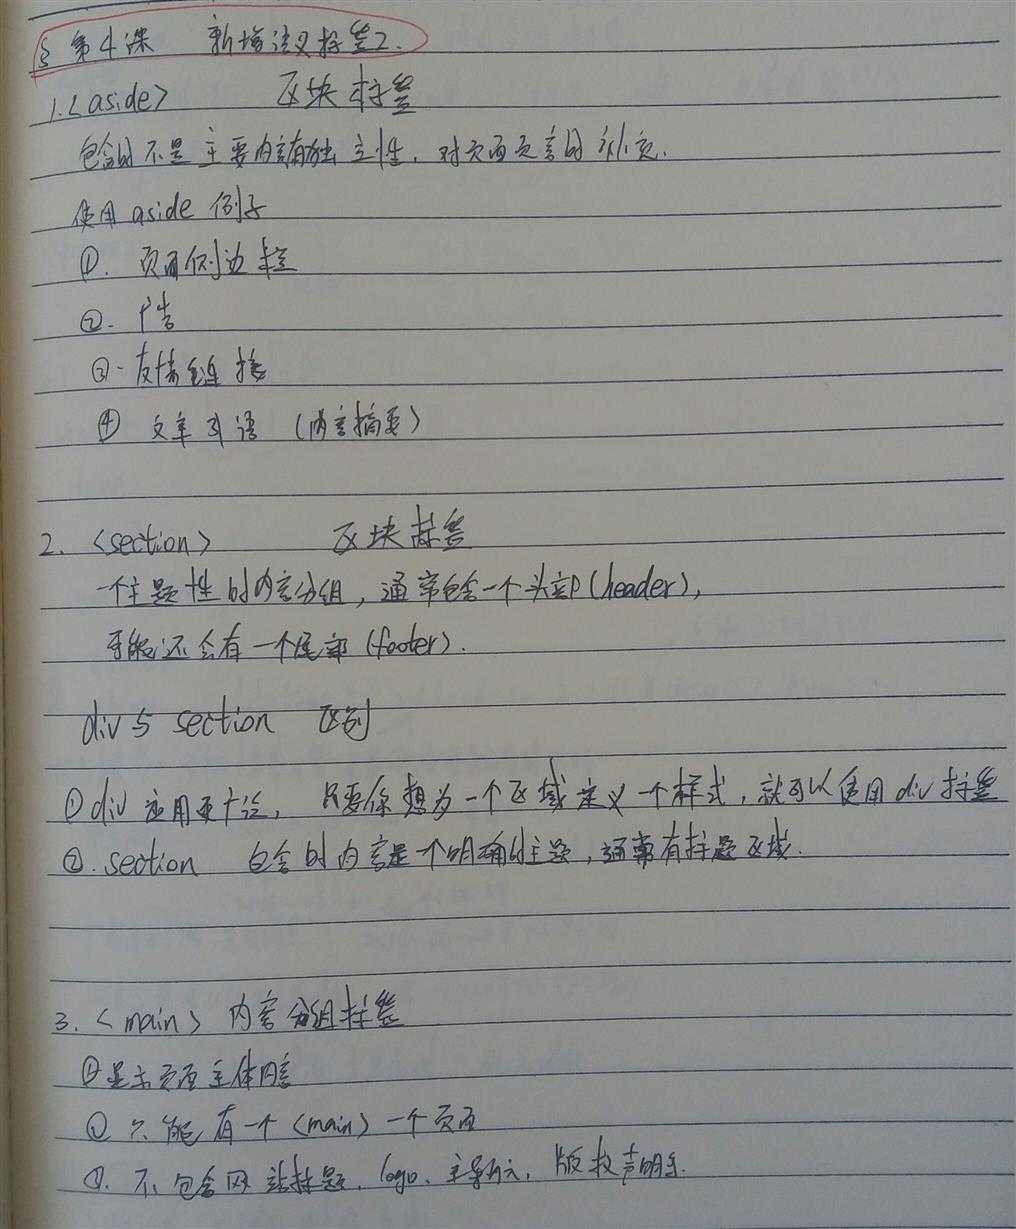 § 第4课 新增语义标签2.
1.<aside> 区块标签
包含的不是主要内容有独立性，对页面页言的补充.
使用 aside 例子
①. 页面侧边栏
②. 广告
③. 友情链接
④ 文章引语 (内容摘要)
2. <section> 区块标签
一个主题性的内容分组，通常包含一个头部(header),
可能还会有一个尾部 (footer).
div 与 section 区别
① div 应用更广泛，只要你想为一个区域定义一个样式，就可以使用 div 标签
②. section 包含的内容是个明确的主题，通常有标题区域.
3. <main> 内容分组标签
① 显示页面主体内容
② 只能有一个<main>一个页面
③. 不包含网站标题、logo、主导航、版权声明等.